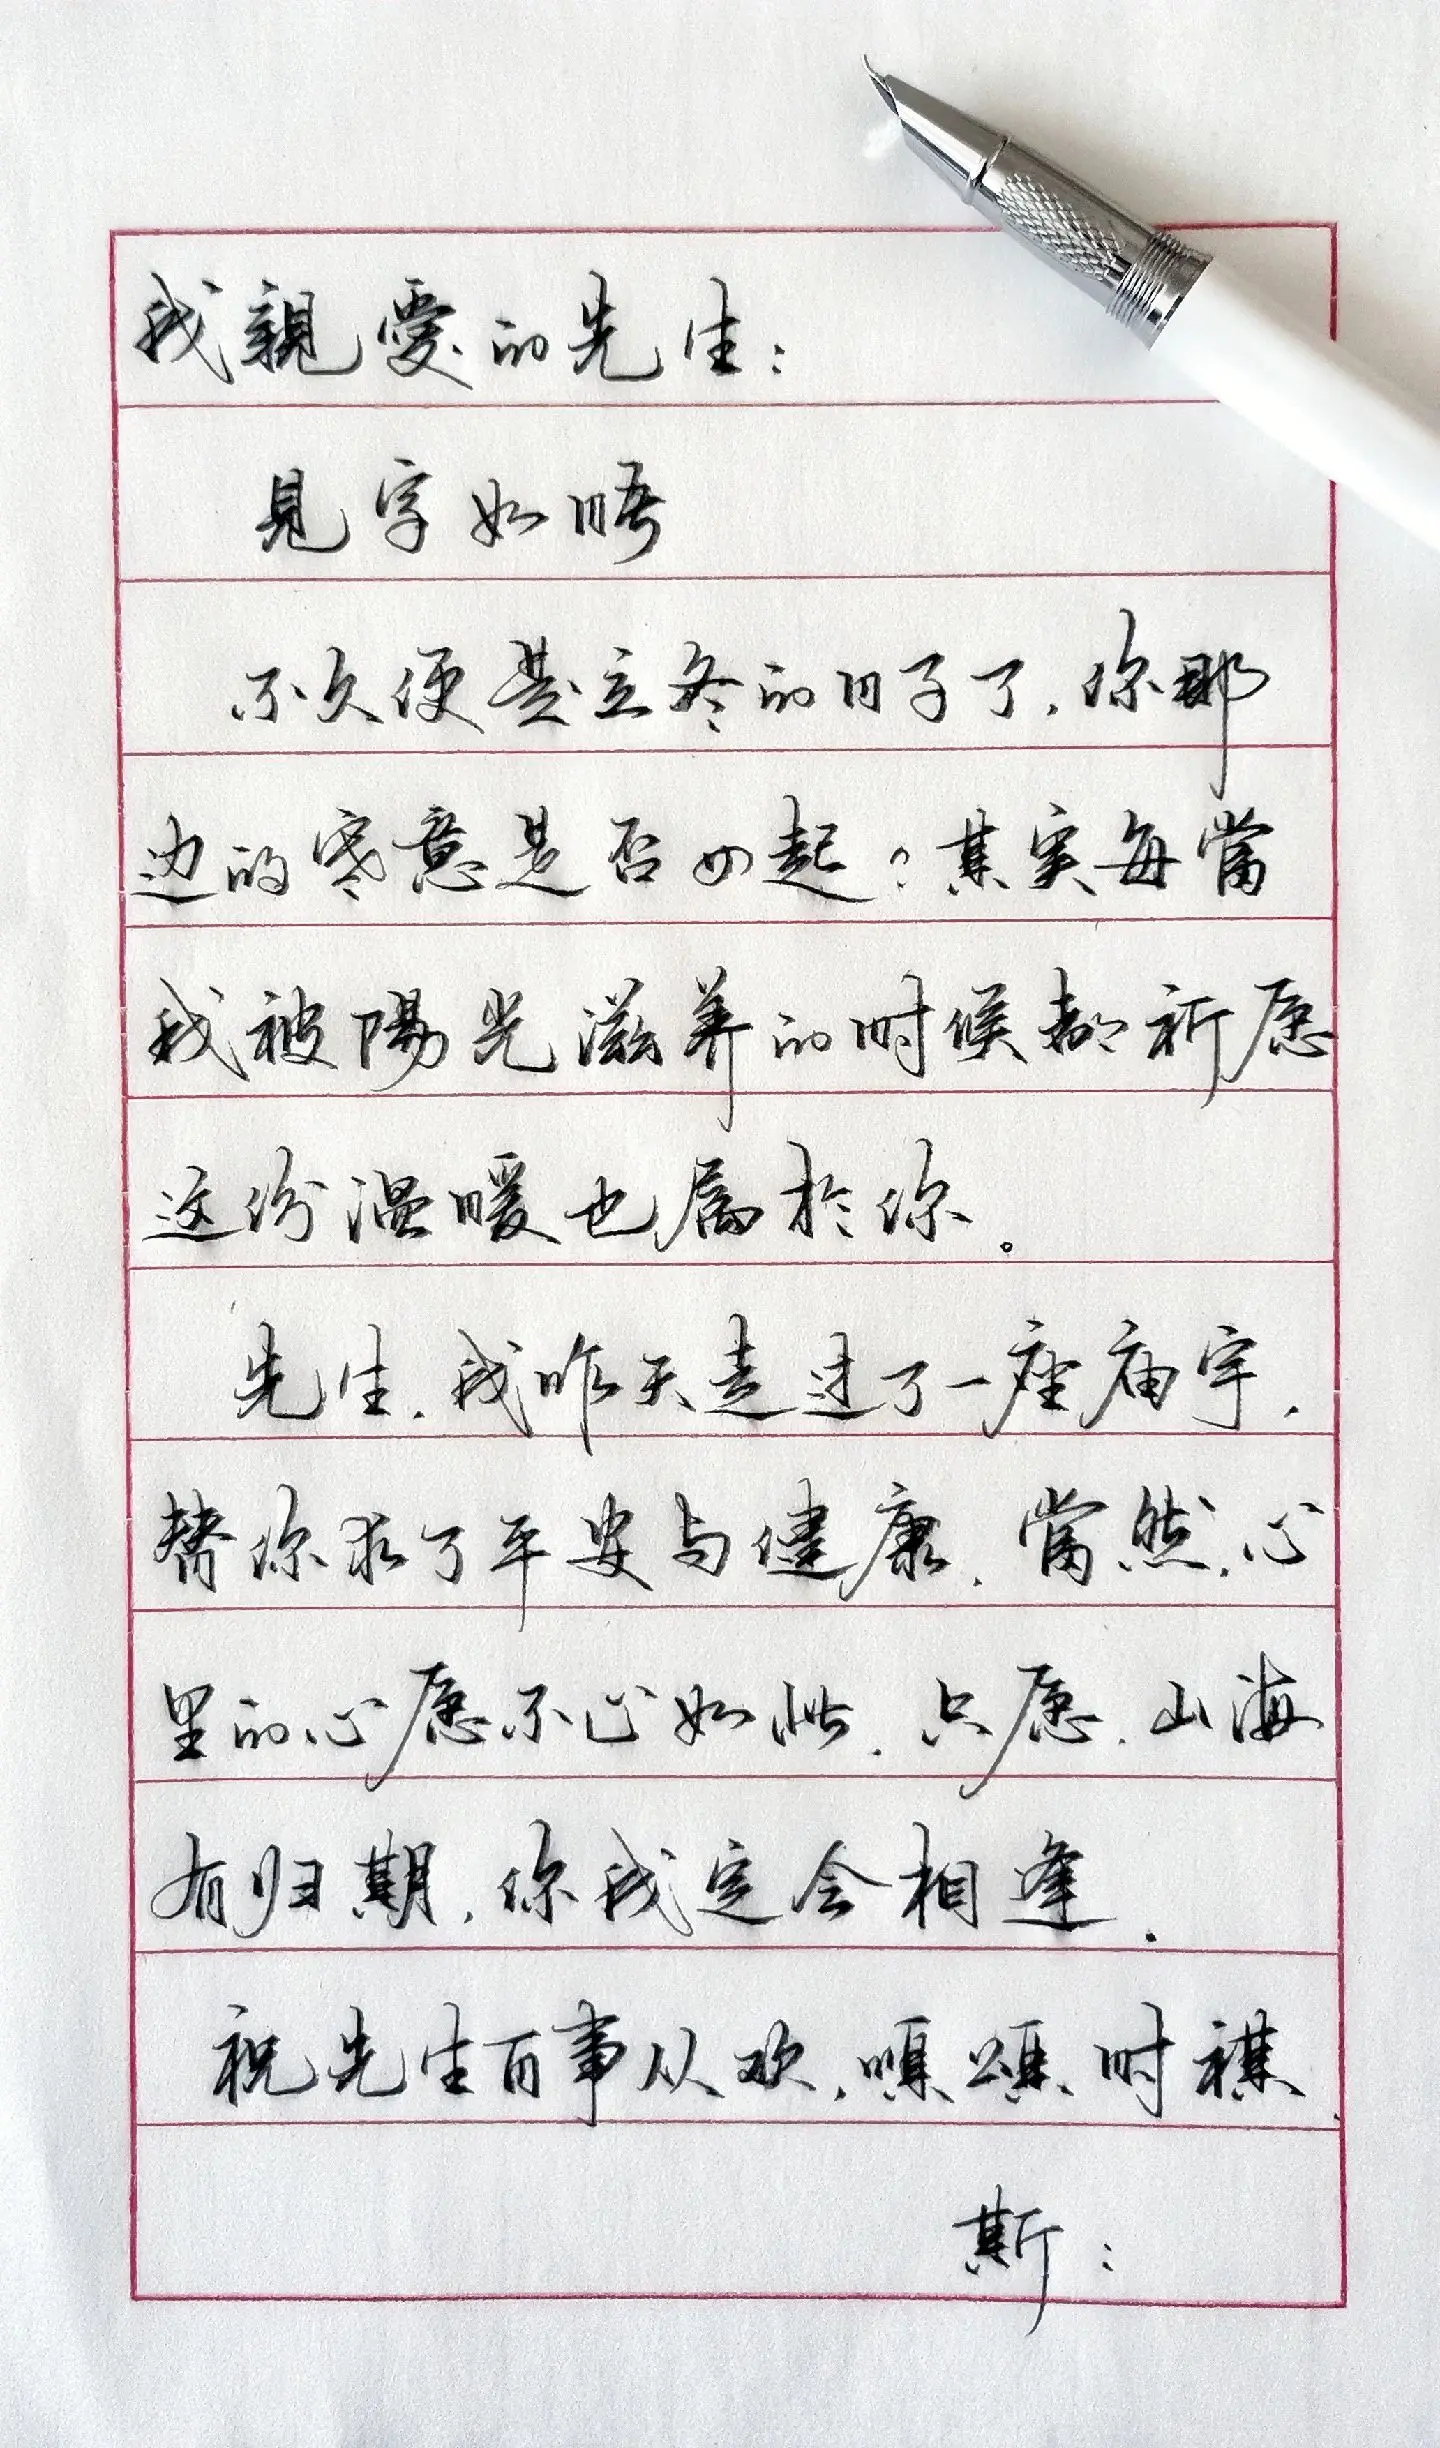 我親愛的先生：
見字如晤
不久便是立冬的日子了，你那
边的寒意是否四起？其实每當
我被陽光滋养的时候都祈愿
这份温暖也属於你。
先生，我昨天走过了一座庙宇，
替你求了平安与健康，當然，心
里的心愿不止如此，只愿，山海
有归期，你我定会相逢．
祝先生百事从欢，順頌时祺，
斯：